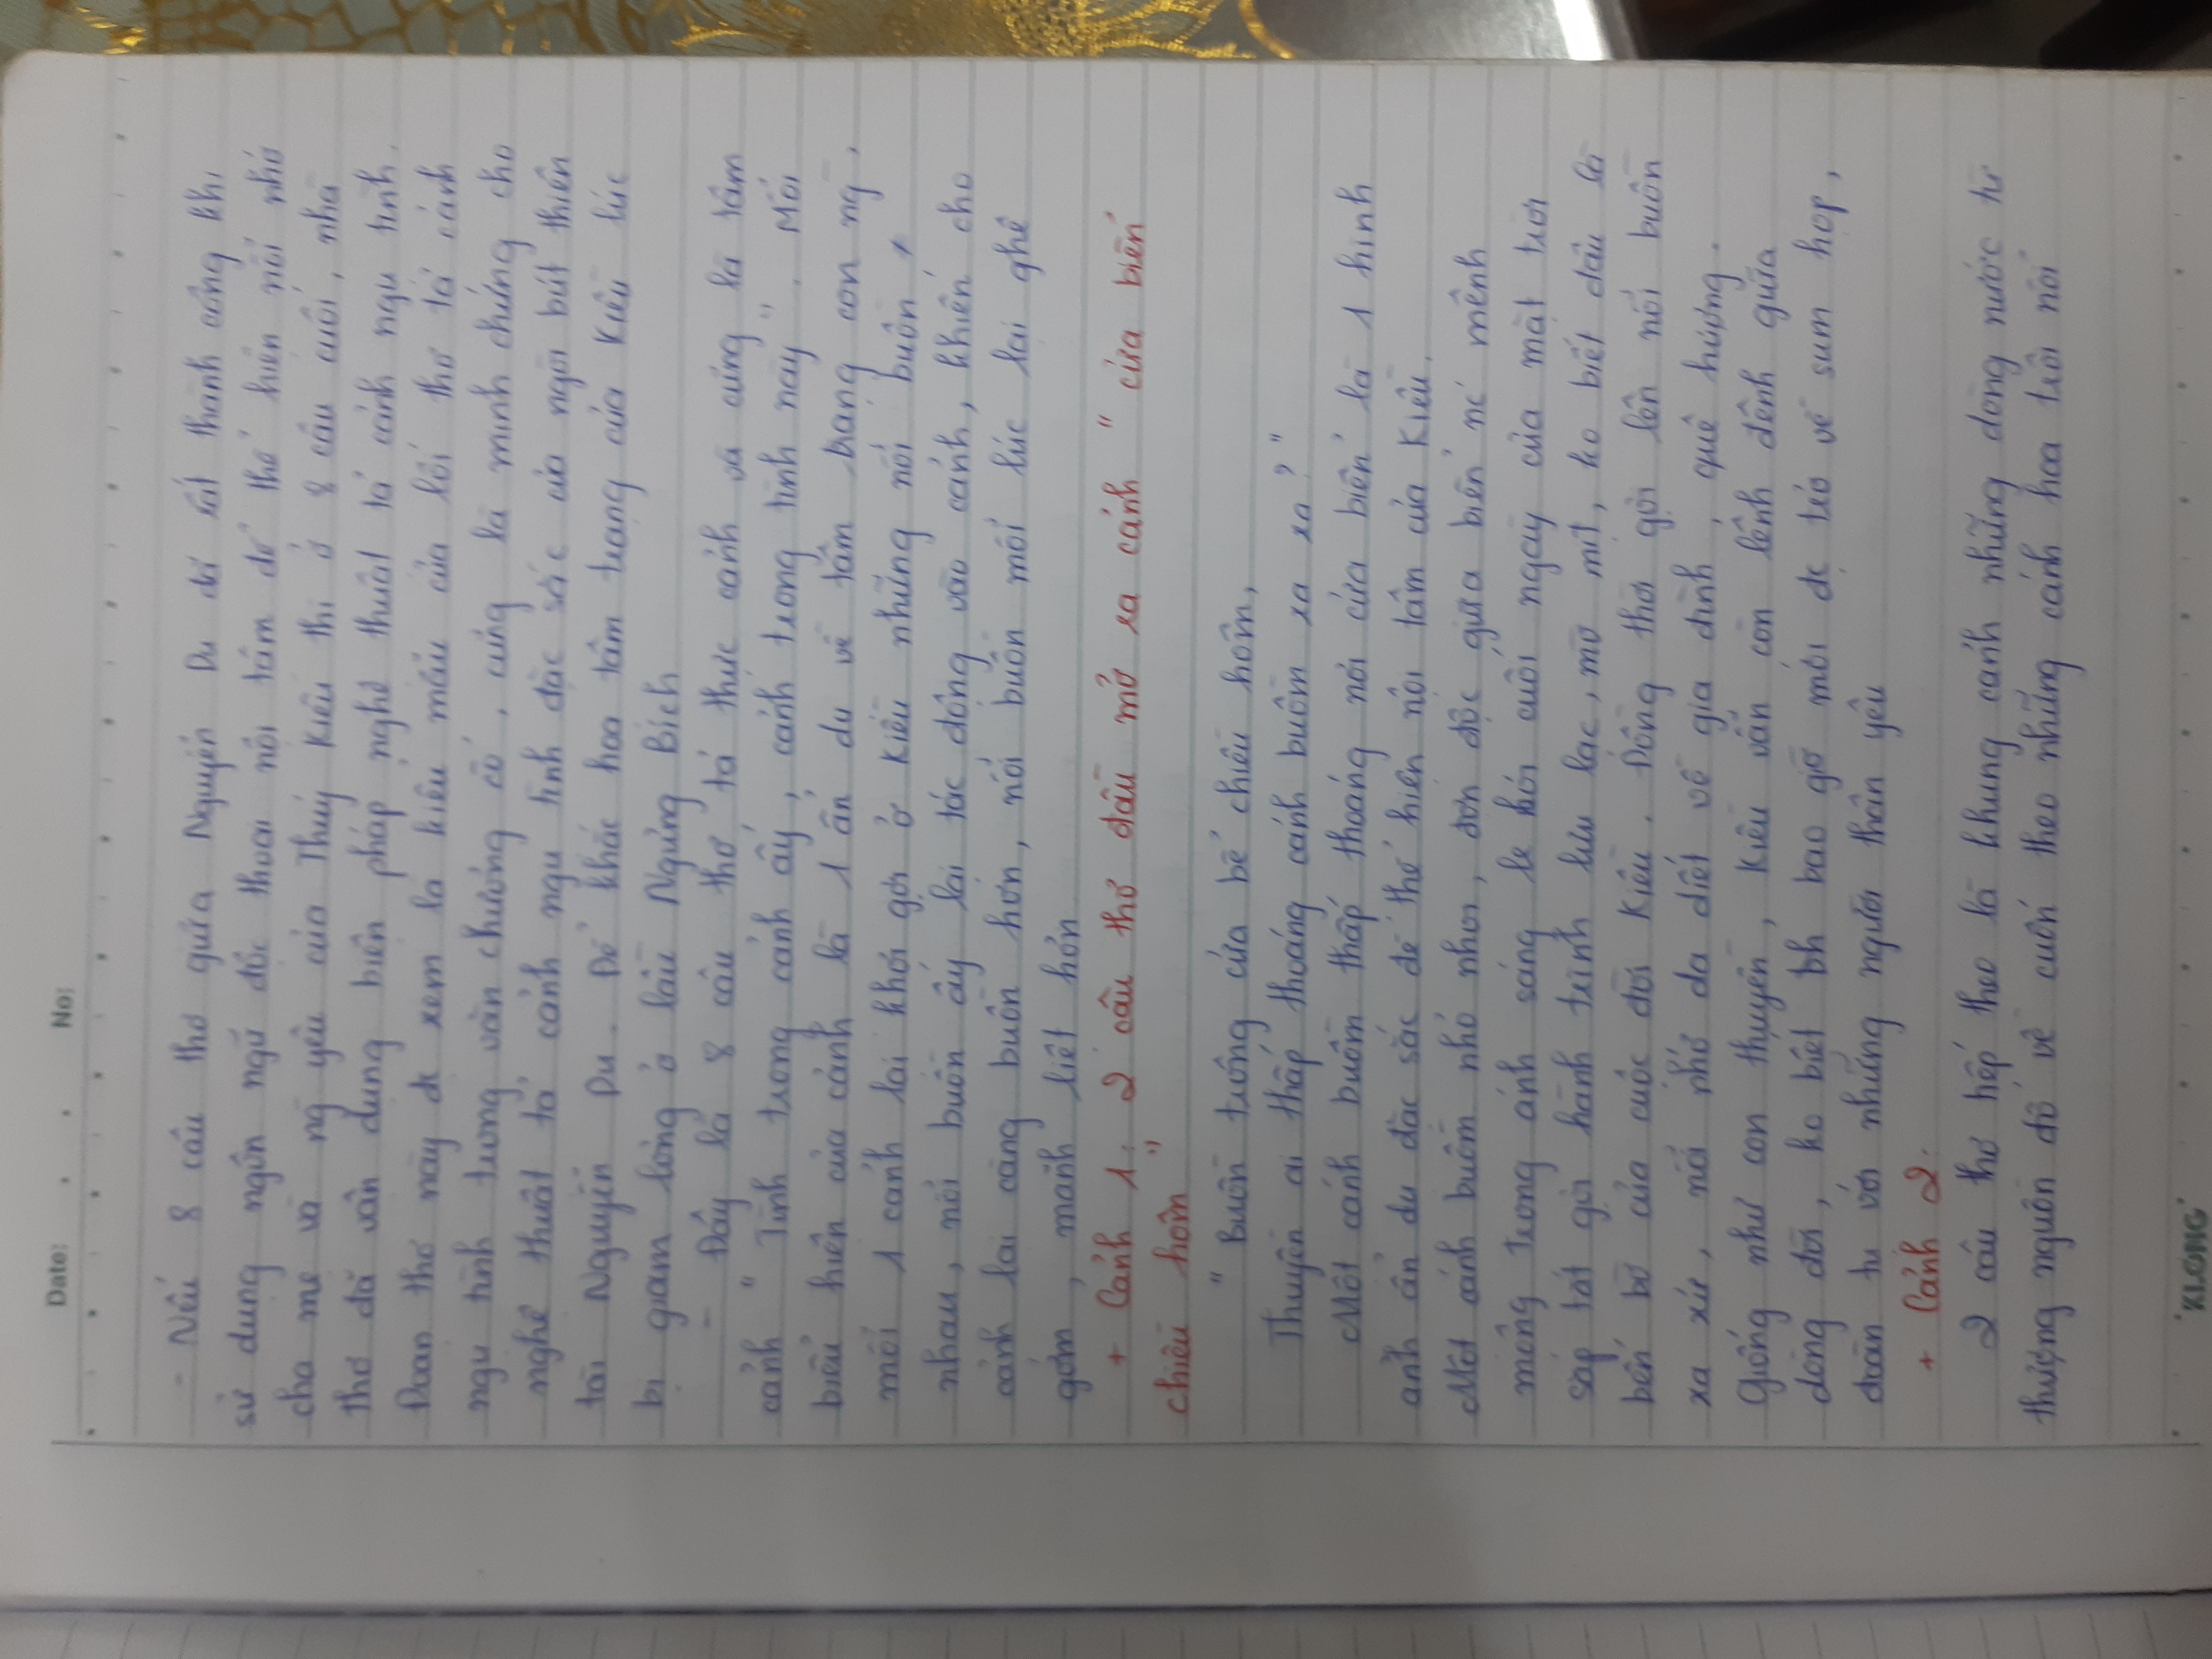 Date: . . No:
- Nếu 8 câu thơ giữa Nguyễn Du đã rất thành công khi
sử dụng ngôn ngữ độc thoại nội tâm để thể hiện nỗi nhớ
cha mẹ và ng yêu của Thuý Kiều thì ở 8 câu cuối, nhà
thơ đã vận dụng biện pháp nghệ thuật tả cảnh ngụ tình.
Đoạn thơ này đc xem là kiểu mẫu của lối thơ tả cảnh
ngụ tình trong văn chương cổ, cũng là minh chứng cho
nghệ thuật tả cảnh ngụ tình đặc sắc của ngòi bút thiên
tài Nguyễn Du. Để khắc hoạ tâm trạng của Kiều lúc
bị giam lỏng ở lầu Ngưng Bích
- Đây là 8 câu thơ tả thực cảnh và cũng là tâm
cảnh " Tình trong cảnh ấy, cảnh trong tình này". Mỗi
biểu hiện của cảnh là 1 ẩn dụ về tâm trạng con ng,
mỗi 1 cảnh lại khơi gợi ở Kiều những nỗi buồn ≠
nhau, nỗi buồn ấy lại tác động vào cảnh, khiến cho
cảnh lại càng buồn hơn, nỗi buồn mỗi lúc lại ghê
gớm, mãnh liệt hơn
+ Cảnh 1: 2 câu thơ đầu mở ra cảnh " cửa biển
chiều hôm "
" Buồn trông cửa bể chiều hôm,
Thuyền ai thấp thoáng cánh buồm xa xa? "
Một cánh buồm thấp thoáng nơi cửa biển là 1 hình
ảnh ẩn dụ đặc sắc để thể hiện nội tâm của Kiều.
Một cánh buồm nhỏ nhoi, đơn độc giữa biển nc mênh
mông trong ánh sáng le lói cuối ngày của mặt trời
sắp tắt gợi hành trình lưu lạc, mờ mịt, ko biết đâu là
bến bờ của cuộc đời Kiều. Đồng thời gợi lên nỗi buồn
xa xứ, nỗi nhớ da diết về gia đình, quê hương.
Giống như con thuyền, Kiều vẫn còn lênh đênh giữa
dòng đời, ko biết bh bao giờ mới đc trở về sum họp,
đoàn tụ với những người thân yêu
+ Cảnh 2:
2 câu thơ tiếp theo là khung cảnh những dòng nước từ
thượng nguồn đổ về cuốn theo những cánh hoa trôi nổi
"KLONG"